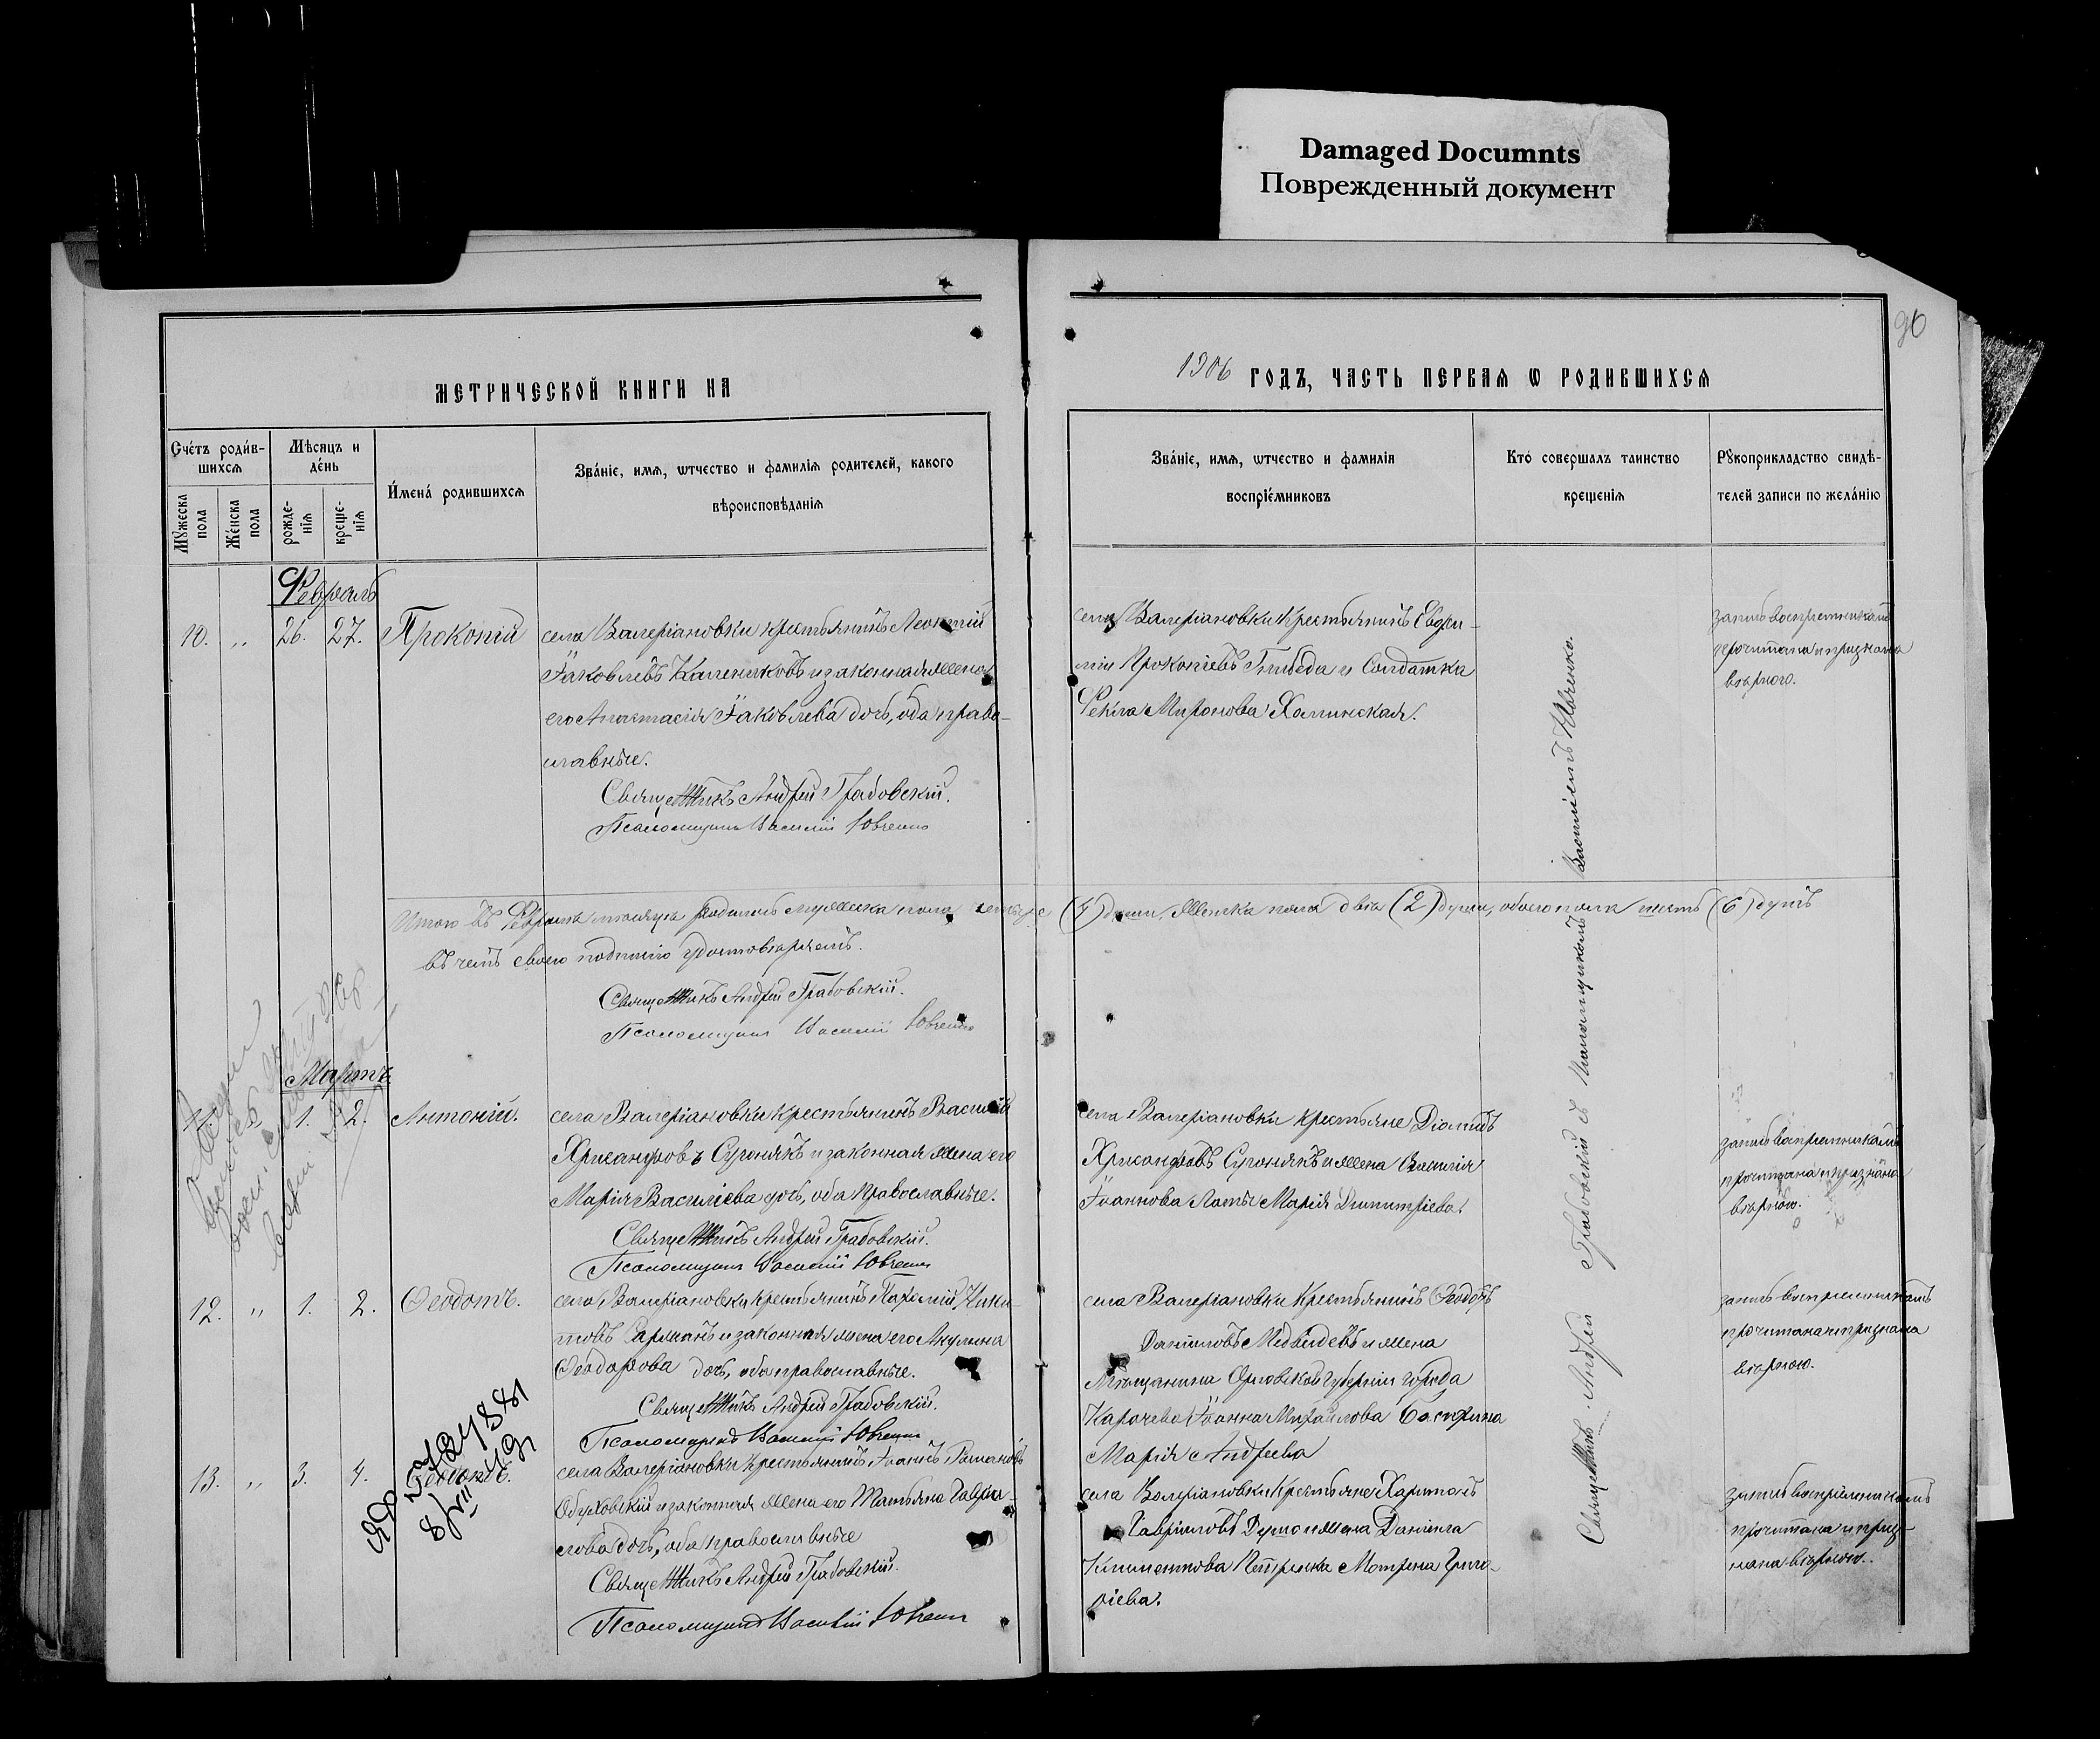 Damaged Documnts
Поврежденный документ
90
МЕТРИЧЕСКОЙ КНИГИ НА
1906 ГОДЪ, ЧАСТЬ ПЕРВАЯ Ѡ РОДИВШИХСЯ
Счетъ родив-
шихся
Мужеска пола
Женска пола
Мѣсяцъ и день
рожде-
нія
креще-
нія
Имена родившихся
Званіе, имя, ѡтчество и фамилія родителей, какого
вѣроисповѣданія
Званіе, имя, ѡтчество и фамилія
воспріемниковъ
Кто совершалъ таинство
крещенія
Рукоприкладство свидѣ-
телей записи по желанію
Февраль
10. " 26. 27. Прокопій
села Валеріановки крестьянинъ Леонтій
Іаковлевъ Калениковъ и законная жена
его Анастасія Іаковлева дочь, оба право-
славные.
Священникъ Андрей Грабовскій.
Псаломщикъ Василій Ювченко
села Валеріановки крестьянинъ Евфи-
мій Прокопіевъ и Солдатка
Фекла Миронова Халинская.
запись воспріемникамъ
прочитана и признана
вѣрною.
Итого въ Февралѣ мѣсяцѣ родилось мужеска пола четыре (4) души, женска пола двѣ (2) души, обоего пола шесть (6) душъ
въ чемъ своею подписью удостовѣряемъ.
Священникъ Андрей Грабовскій.
Псаломщикъ Василій Ювченко
Мартъ
11. " 1. 2. Антоній.
села Валеріановки крестьянинъ Василій
Хрисанфовъ Сугонякъ и законная жена его
Марія Василіева дочь, оба православные.
Священникъ Андрей Грабовскій.
Псаломщикъ Василій Ювченко
села Валеріановки крестьяне Діомидъ
Хрисанфовъ Сугонякъ и жена Василія
Іоаннова Марія Димитріева.
запись воспріемникамъ
прочитана и признана
вѣрною.
12. " 1. 2. Ѳеодотъ.
села Валеріановки крестьянинъ Пахомій Ники-
товъ Сарманъ и законная жена его Акулина
Ѳеодорова дочь, оба православные.
Священникъ Андрей Грабовскій.
Псаломщикъ Василій Ювченко
села Валеріановки Крестьянинъ Ѳеодоръ
Даніиловъ Медвѣдевъ и жена
Мѣщанина Орловской губерніи города
Карачева Іоанна Михайлова
Марія Андреева
запись воспріемникамъ
прочитана и признана
вѣрною.
13. " 3. 4.
села Валеріановки крестьянинъ Іоаннъ Романовъ
Обуховскій и законная жена его Татьяна Гаври-
лова дочь, оба православные
Священникъ Андрей Грабовскій.
Псаломщикъ Василій Ювченко
села Валеріановки Крестьяне Харитонъ
Гавріиловъ и жена Даніила
Климентова Матрона Григо-
ріева.
запись воспріемникамъ
прочитана и приз-
нана вѣрною.
Священникъ Андрей Грабовскій съ псаломщикомъ Василіемъ